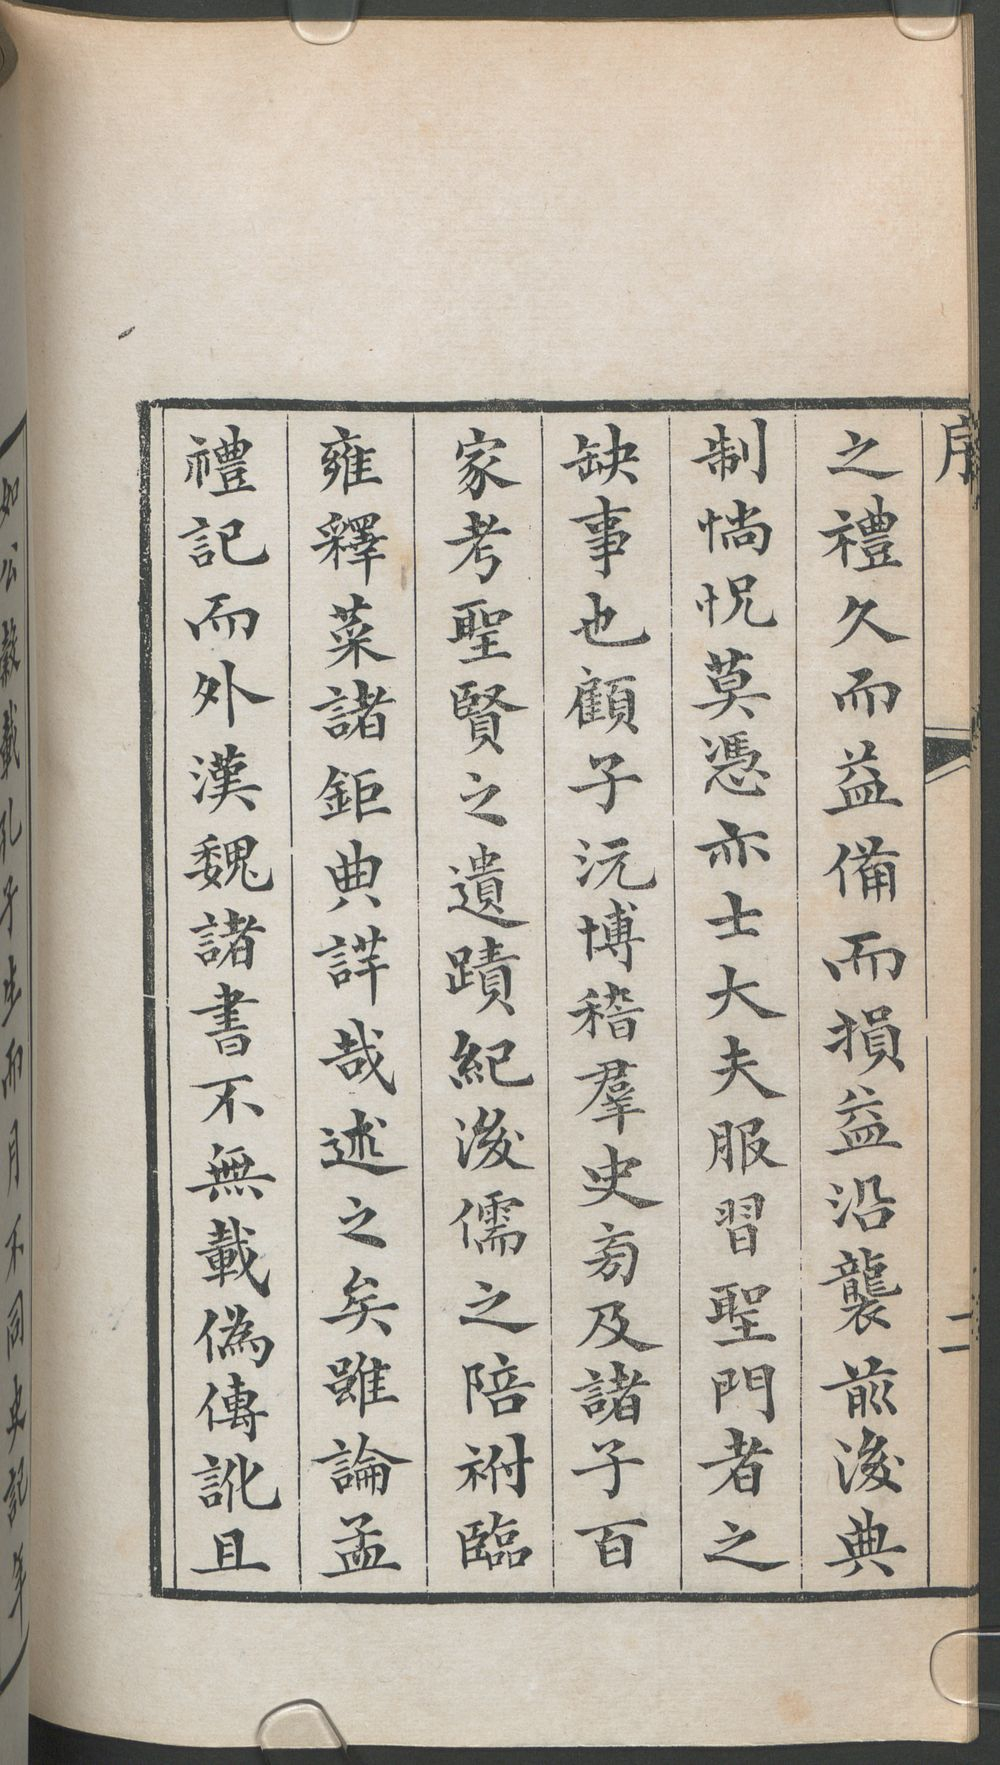 序
二
之禮久而益備而損益沿襲前後典
制惝怳莫憑亦士大夫服習聖門者之
缺事也顧子沅博稽羣史旁及諸子百
家考聖賢之遺蹟紀後儒之陪祔臨
雍釋菜諸鉅典詳哉述之矣雖論孟
禮記而外漢魏諸書不無載偽傳訛且
如公穀載孔子生而月不同史記年